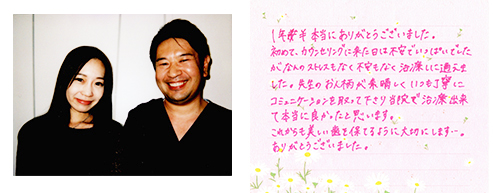 1年半本当にありがとうございました。
初めて、カウンセリングに来た日は不安でいっぱいでした
が、なんのストレスもなく不安もなく治療しに通えま
した。先生のお人柄が素晴しくいつも丁寧に
コミュニケーションを取って下さり当院で治療出来
て本当に良かったと思います。
これからも美しい歯を保てるように大切にします…。
ありがとうございました。